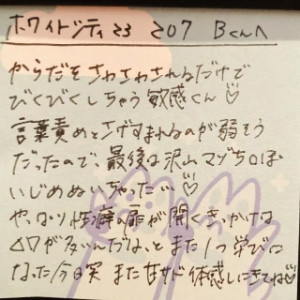 ホワイトシティ23 207 Bくんへ
からだをさわさわされるだけで
びくびくしちゃう敏感くん♡
言葉責めとさげすまれるのが弱そう
だったので、最後は沢山マゾちOぽ
いじめぬいちゃった…♡
やっぱり性癖の扉が開くきっかけは
が多いんだな、とまた1つ学びに
なった今日 また甘サド体感しにきてね♡